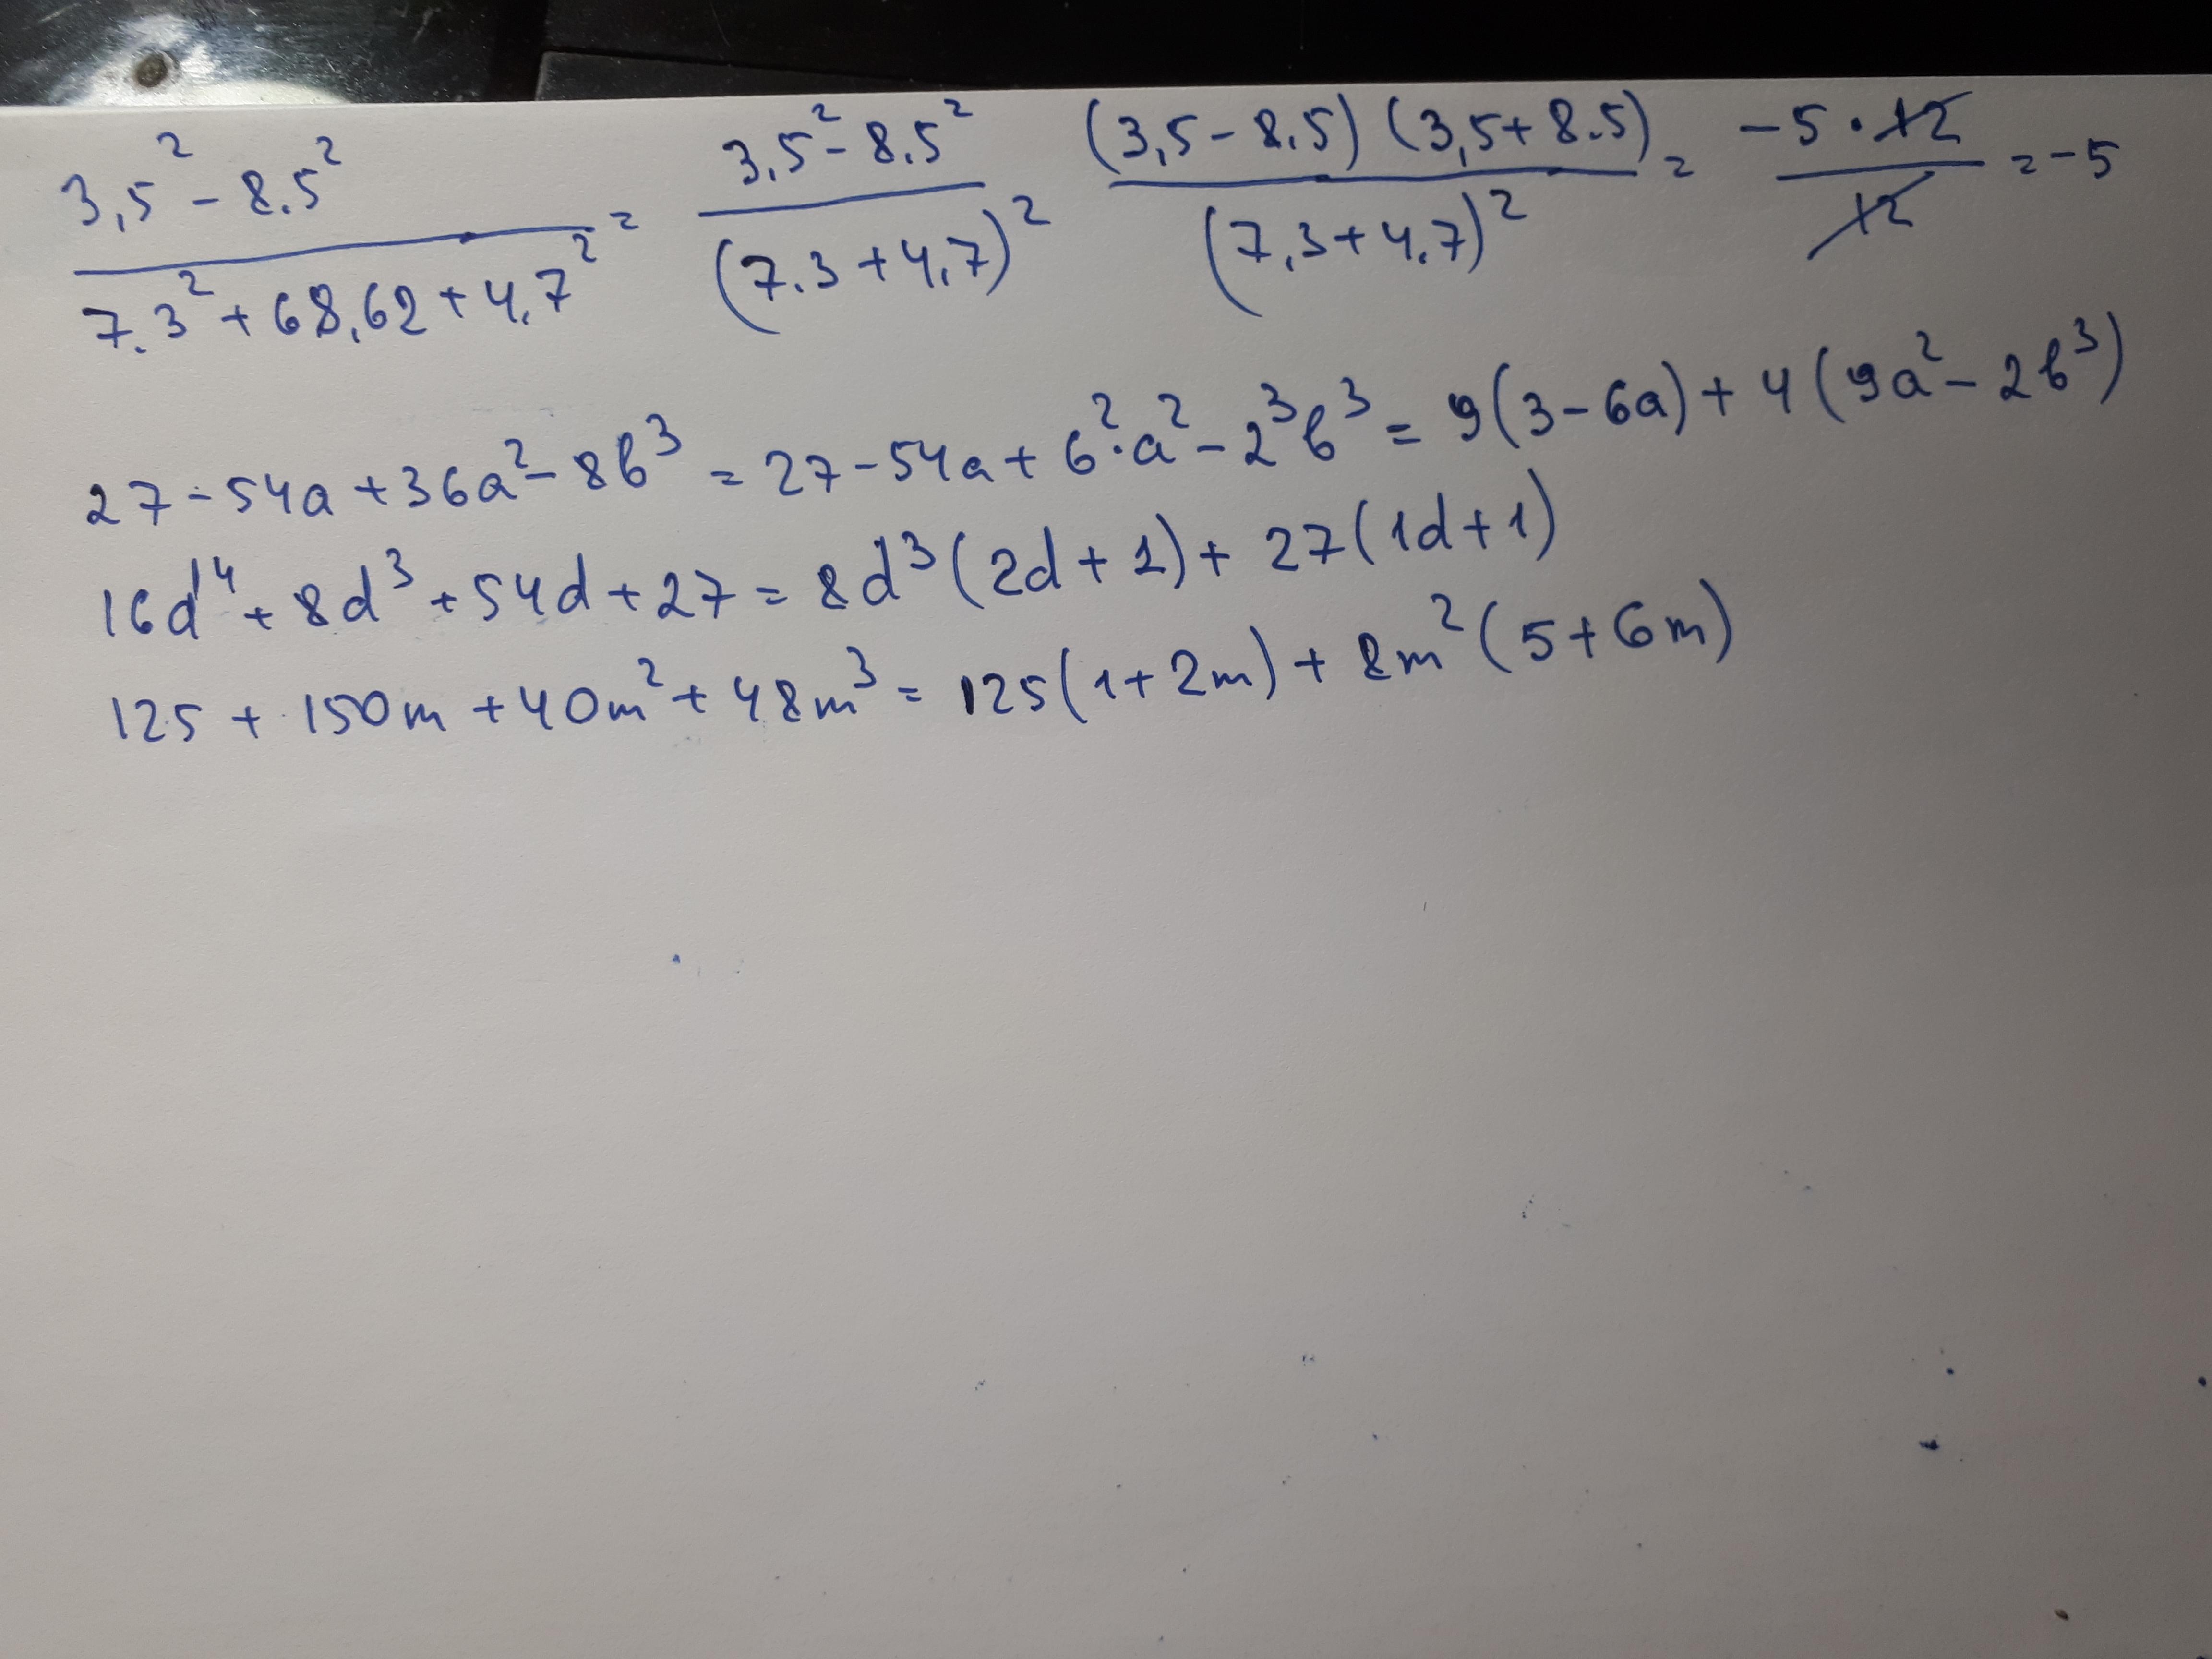 (3,5² - 8.5²)/(7.3² + 68,62 + 4,7²) = (3,5² - 8,5²)/(7.3 + 4,7)² ((3,5 - 8,5)(3,5 + 8.5))/(7,3 + 4,7)² = (-5 · 12)/12 = -5
27 - 54a + 36a² - 8b³ = 27 - 54a + 6² · a² - 2³b³ = 9(3 - 6a) + 4(9a² - 2b³)
16d⁴ + 8d³ + 54d + 27 = 8d³(2d + 1) + 27(1d + 1)
125 + 150m + 40m² + 48m³ = 125(1 + 2m) + 8m²(5 + 6m)